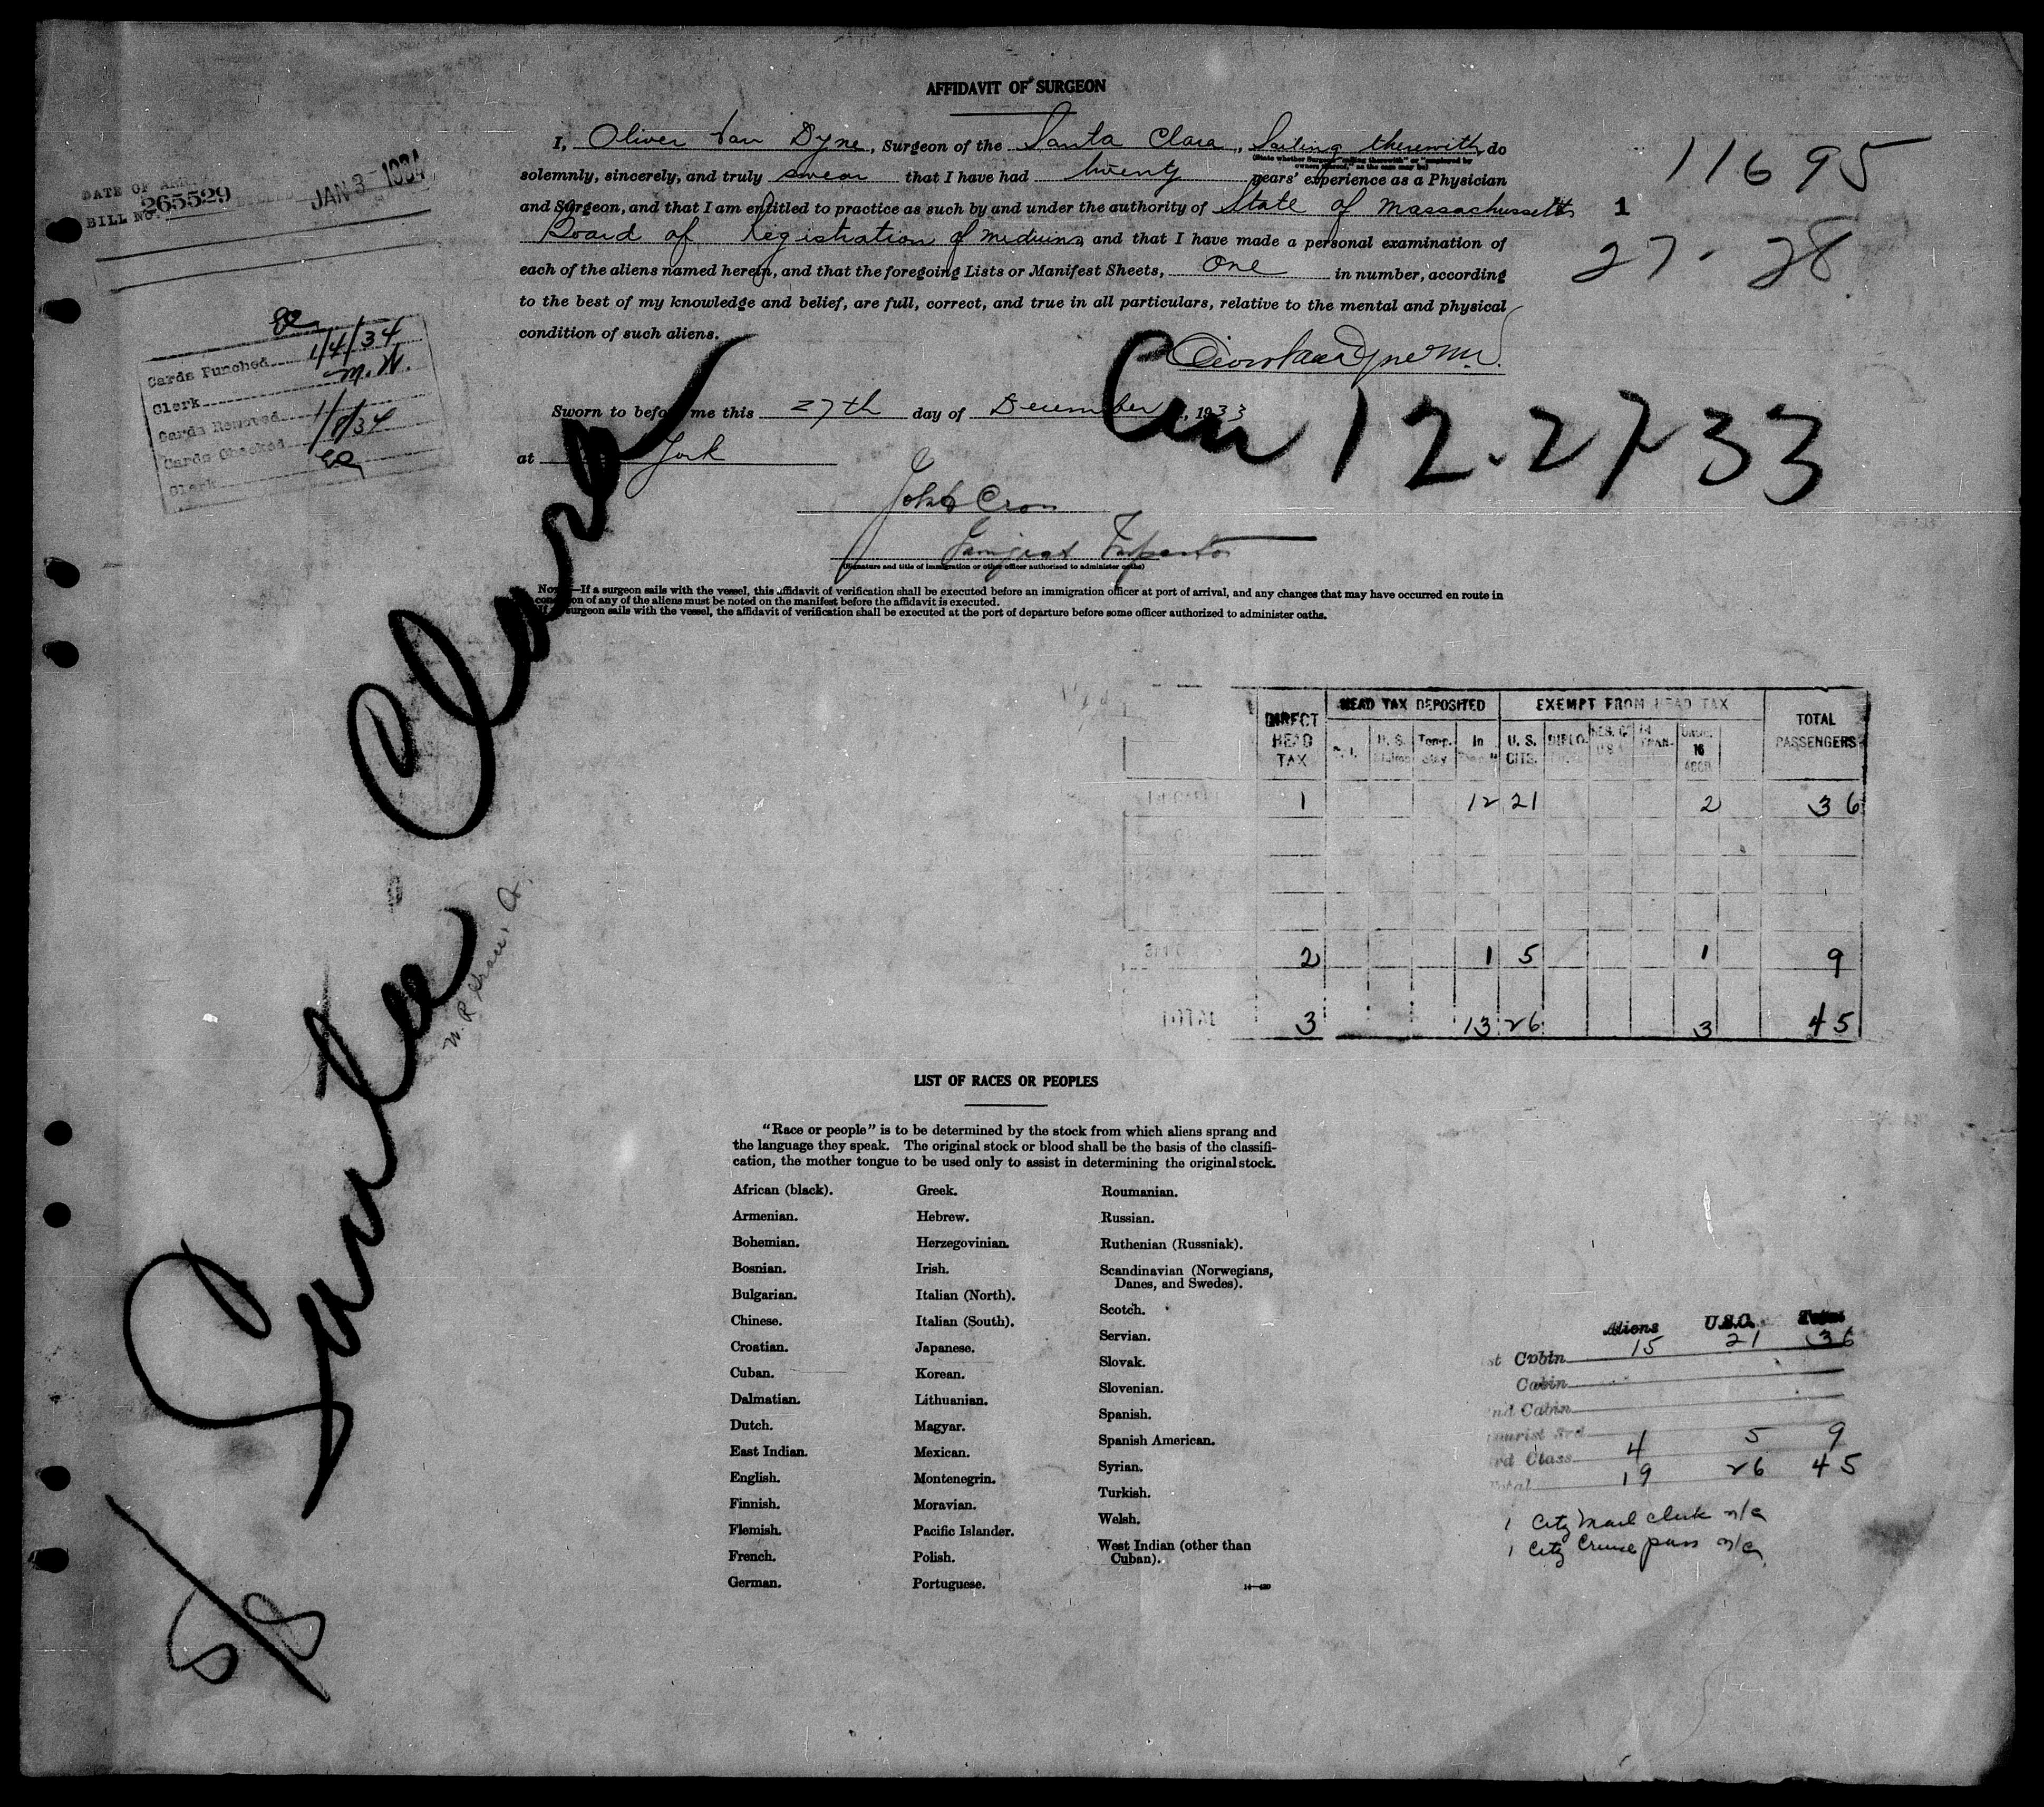 AFFIDAVIT OF SURGEON
I, Oliver Van Dyne, Surgeon of the Santa Clara, Sailing therewith do
(State whether Surgeon "sailing therewith" or "employed by
owners thereof," as the case may be)
solemnly, sincerely, and truly swear that I have had twenty years' experience as a Physician
and Surgeon, and that I am entitled to practice as such by and under the authority of State of Massachussetts
Board of Registration of Medicine and that I have made a personal examination of
each of the aliens named herein, and that the foregoing Lists or Manifest Sheets, One in number, according
to the best of my knowledge and belief, are full, correct, and true in all particulars, relative to the mental and physical
condition of such aliens.
11695
1
27-28
DATE OF
BILL NO. 265529
JAN 3- 1934
Cards Punched 1/4/34
Clerk M.W.
Cards Removed
Cards Checked 1/8/34
Clerk
Sworn to before me this 27th day of December, 1933
at York
12-27-33
John Cron
Immigrant Inspector
(Signature and title of immigration or other officer authorized to administer oaths)
—If a surgeon sails with the vessel, this affidavit of verification shall be executed before an immigration officer at port of arrival, and any changes that may have occurred en route in
condition of any of the aliens must be noted on the manifest before the affidavit is executed.
surgeon sails with the vessel, the affidavit of verification shall be executed at the port of departure before some officer authorized to administer oaths.
Santa Clara
DIRECT HEAD TAX
HEAD TAX DEPOSITED
EXEMPT FROM HEAD TAX
TOTAL PASSENGERS
U. S. Temp. Stay In U. S. CITS. DIPLO. TRAN. 16
1 12 21 2 36
2 1 5 1 9
TOTAL 3 13 26 3 45
LIST OF RACES OR PEOPLES
"Race or people" is to be determined by the stock from which aliens sprang and
the language they speak. The original stock or blood shall be the basis of the classifi-
cation, the mother tongue to be used only to assist in determining the original stock.
African (black).
Armenian.
Bohemian.
Bosnian.
Bulgarian.
Chinese.
Croatian.
Cuban.
Dalmatian.
Dutch.
East Indian.
English.
Finnish.
Flemish.
French.
German.
Greek.
Hebrew.
Herzegovinian.
Irish.
Italian (North).
Italian (South).
Japanese.
Korean.
Lithuanian.
Magyar.
Mexican.
Montenegrin.
Moravian.
Pacific Islander.
Polish.
Portuguese.
Roumanian.
Russian.
Ruthenian (Russniak).
Scandinavian (Norwegians,
Danes, and Swedes).
Scotch.
Servian.
Slovak.
Slovenian.
Spanish.
Spanish American.
Syrian.
Turkish.
Welsh.
West Indian (other than
Cuban).
Aliens U.S.C. Total
st Cabin 15 21 36
Cabin
nd Cabin
ourist 3rd
rd Class 4 5 9
Total 19 26 45
1 City mail clerk n/a
1 City Cruise pass n/a